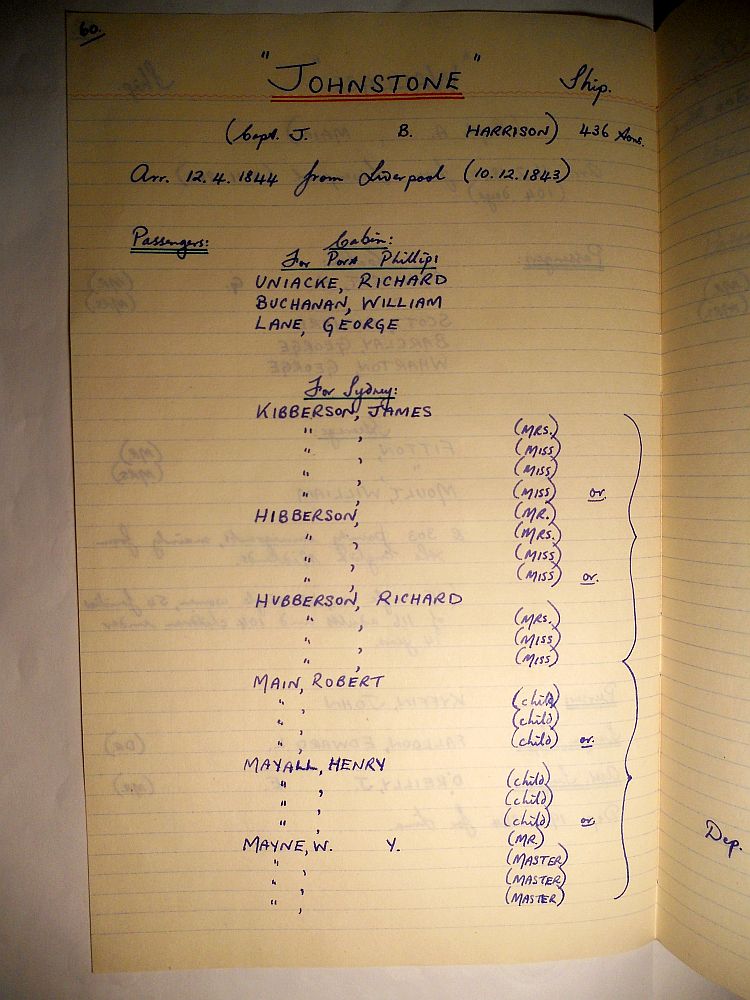 60.
"JOHNSTONE" Ship.
(Capt. J. B. HARRISON) 436 tons.
Arr. 12.4.1844 from Liverpool (10.12.1843)
Passengers: Cabin:
For Port Phillip:
UNIACKE, RICHARD
BUCHANAN, WILLIAM
LANE, GEORGE
For Sydney:
KIBBERSON, JAMES
" , (MRS.)
" , (MISS)
" , (MISS)
" , (MISS) or
HIBBERSON, (MR.)
" , (MRS.)
" , (MISS)
" , (MISS) or
HUBBERSON, RICHARD
" , (MRS.)
" , (MISS)
" , (MISS)
MAIN, ROBERT
" , (child)
" , (child)
" , (child) or
MAYALL, HENRY
" , (child)
" , (child)
" , (child) or
MAYNE, W. Y. (MR.)
" , (MASTER)
" , (MASTER)
" , (MASTER)
Dep.